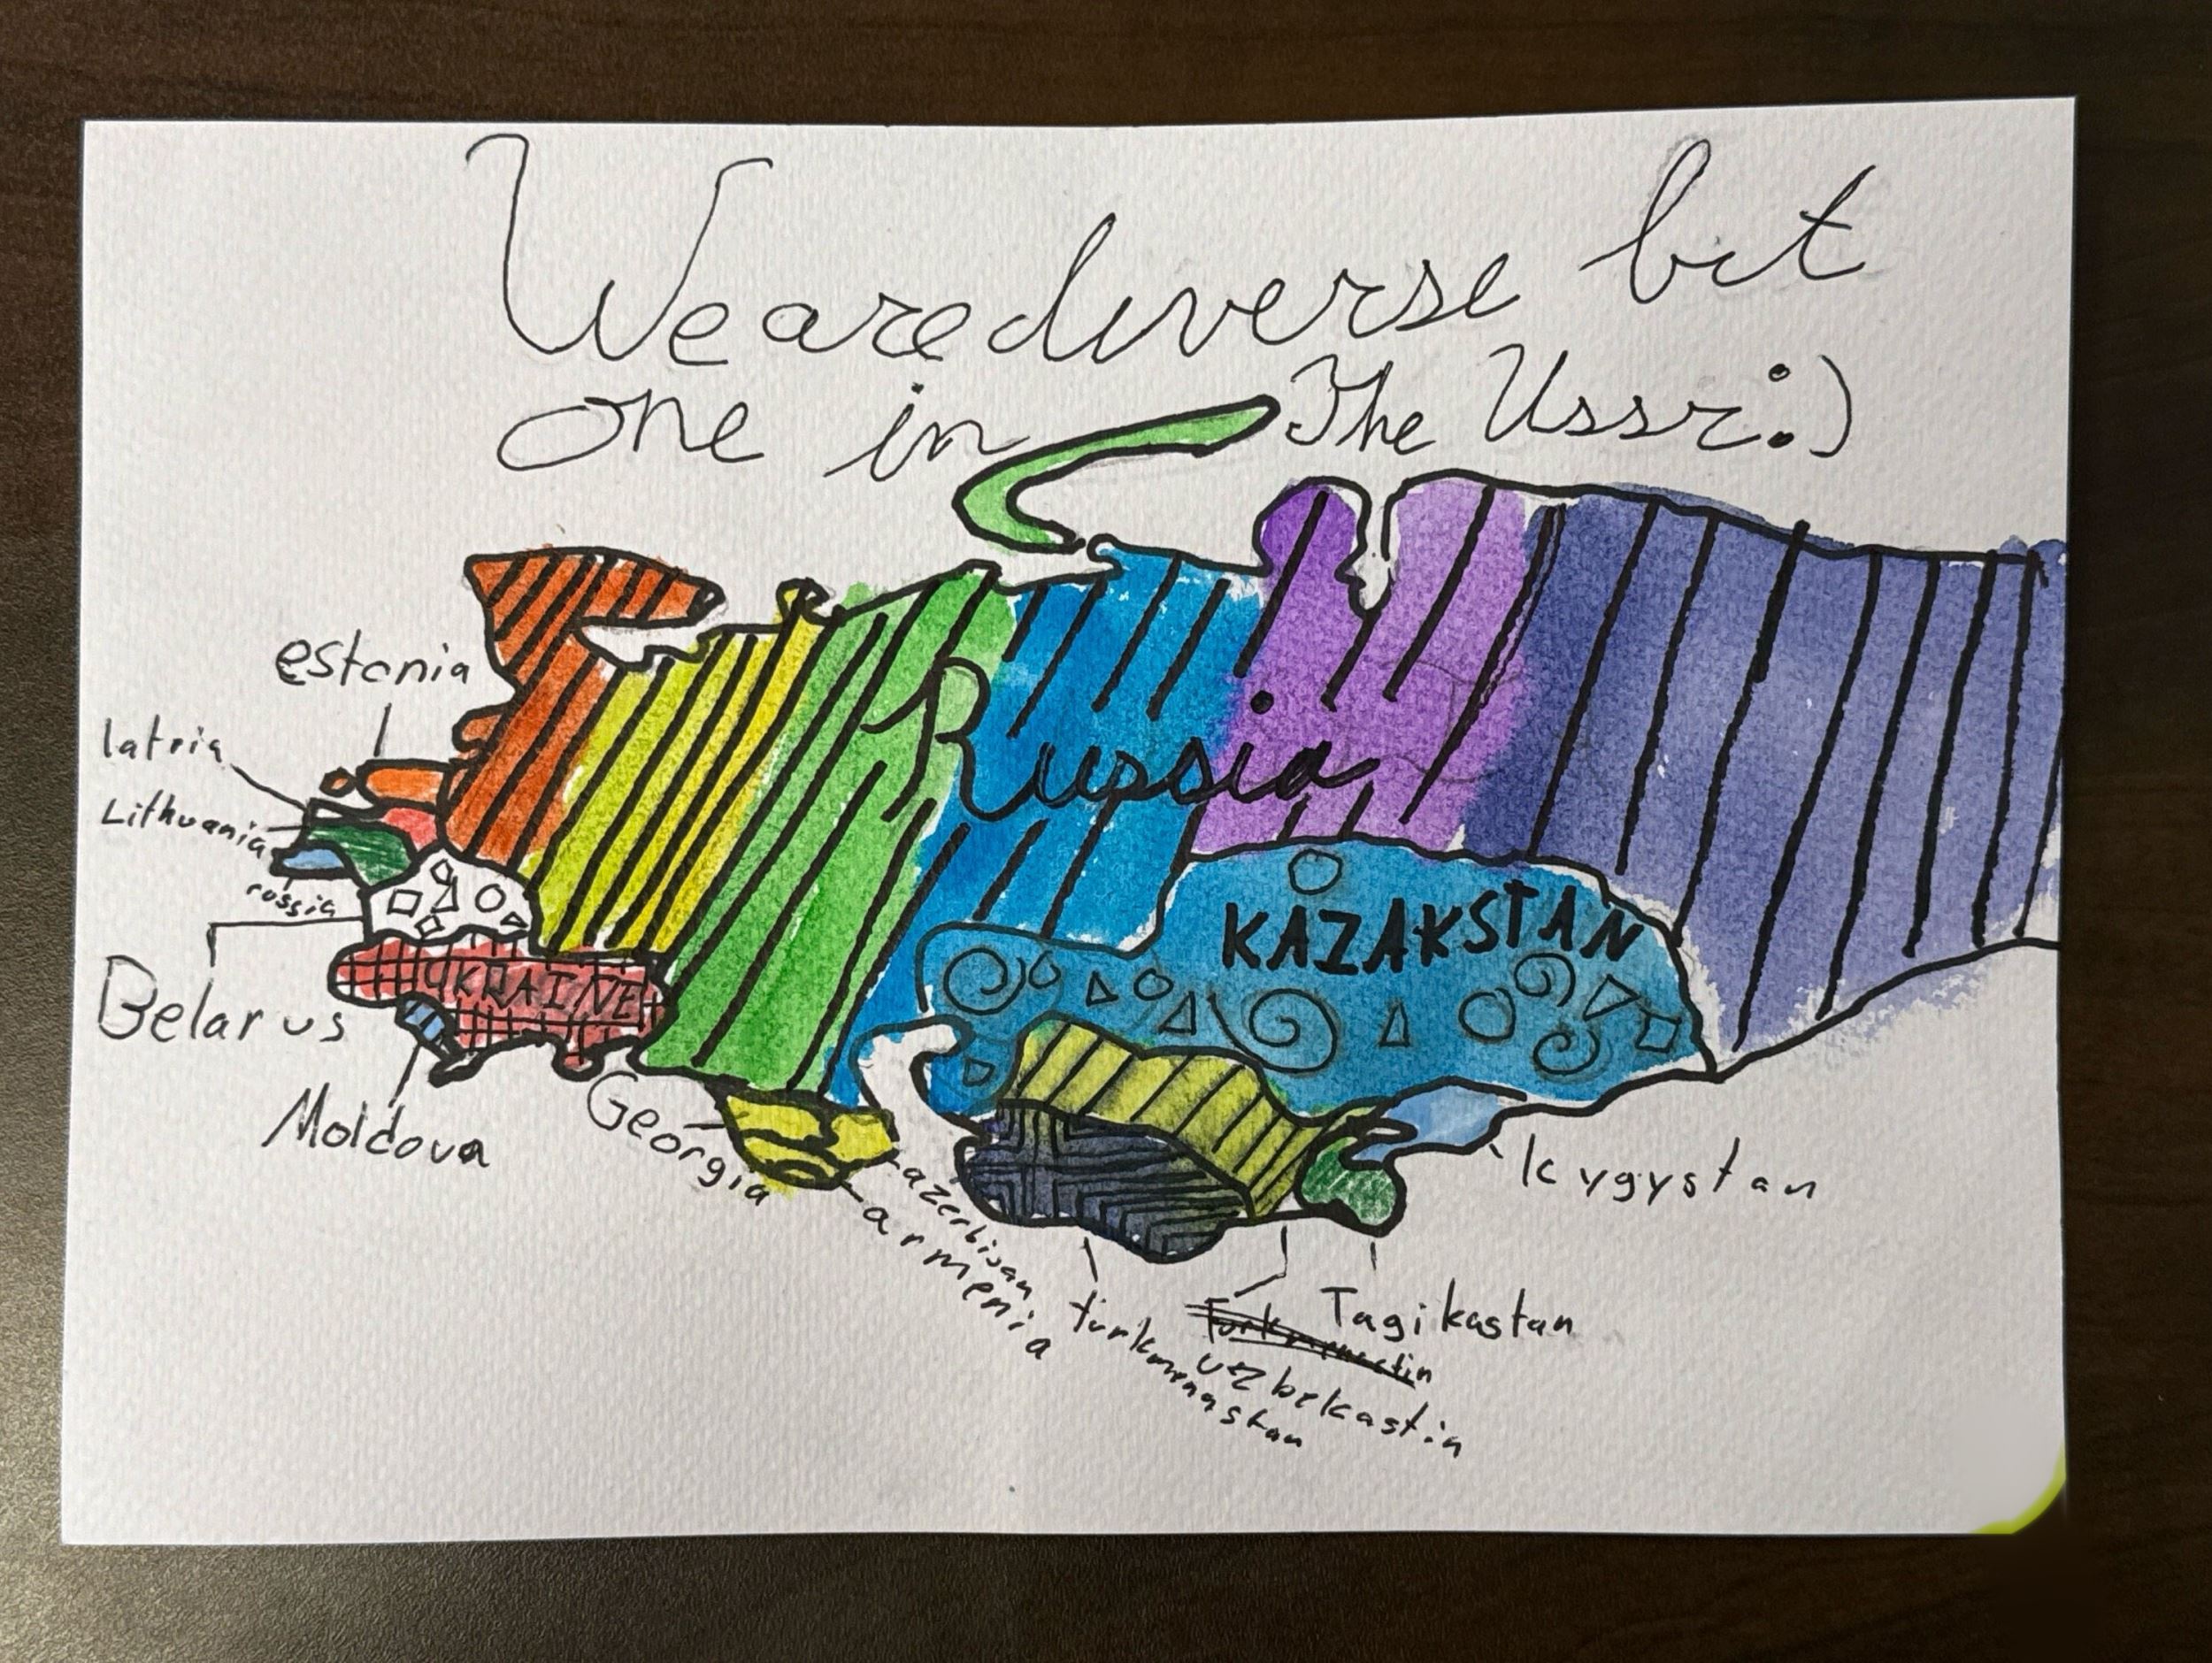 We are diverse but
one in The Ussr:)
estonia
latvia
Lithuania
russia
Belarus
Moldova
UKRAINE
Russia
KAZAKSTAN
Georgia
azerbijan
armenia
turkmenastan
uzbekastin
Tagikastan
kygystan